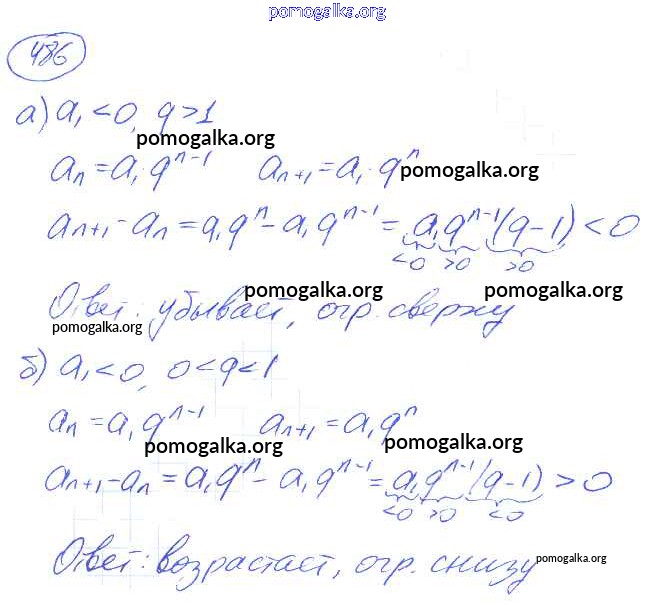 pomogalka.org
486
а) a₁ < 0, q > 1
pomogalka.org
aₙ = a₁·qⁿ⁻¹ aₙ₊₁ = a₁·qⁿ pomogalka.org
aₙ₊₁ - aₙ = a₁qⁿ - a₁qⁿ⁻¹ = a₁qⁿ⁻¹(q-1) < 0
<0 >0 >0
pomogalka.org pomogalka.org
Ответ: убывает, огр. сверху
pomogalka.org
б) a₁ < 0, 0 < q < 1
aₙ = a₁qⁿ⁻¹ aₙ₊₁ = a₁qⁿ
pomogalka.org pomogalka.org
aₙ₊₁ - aₙ = a₁qⁿ - a₁qⁿ⁻¹ = a₁qⁿ⁻¹(q-1) > 0
<0 >0 <0
Ответ: возрастает, огр. снизу pomogalka.org